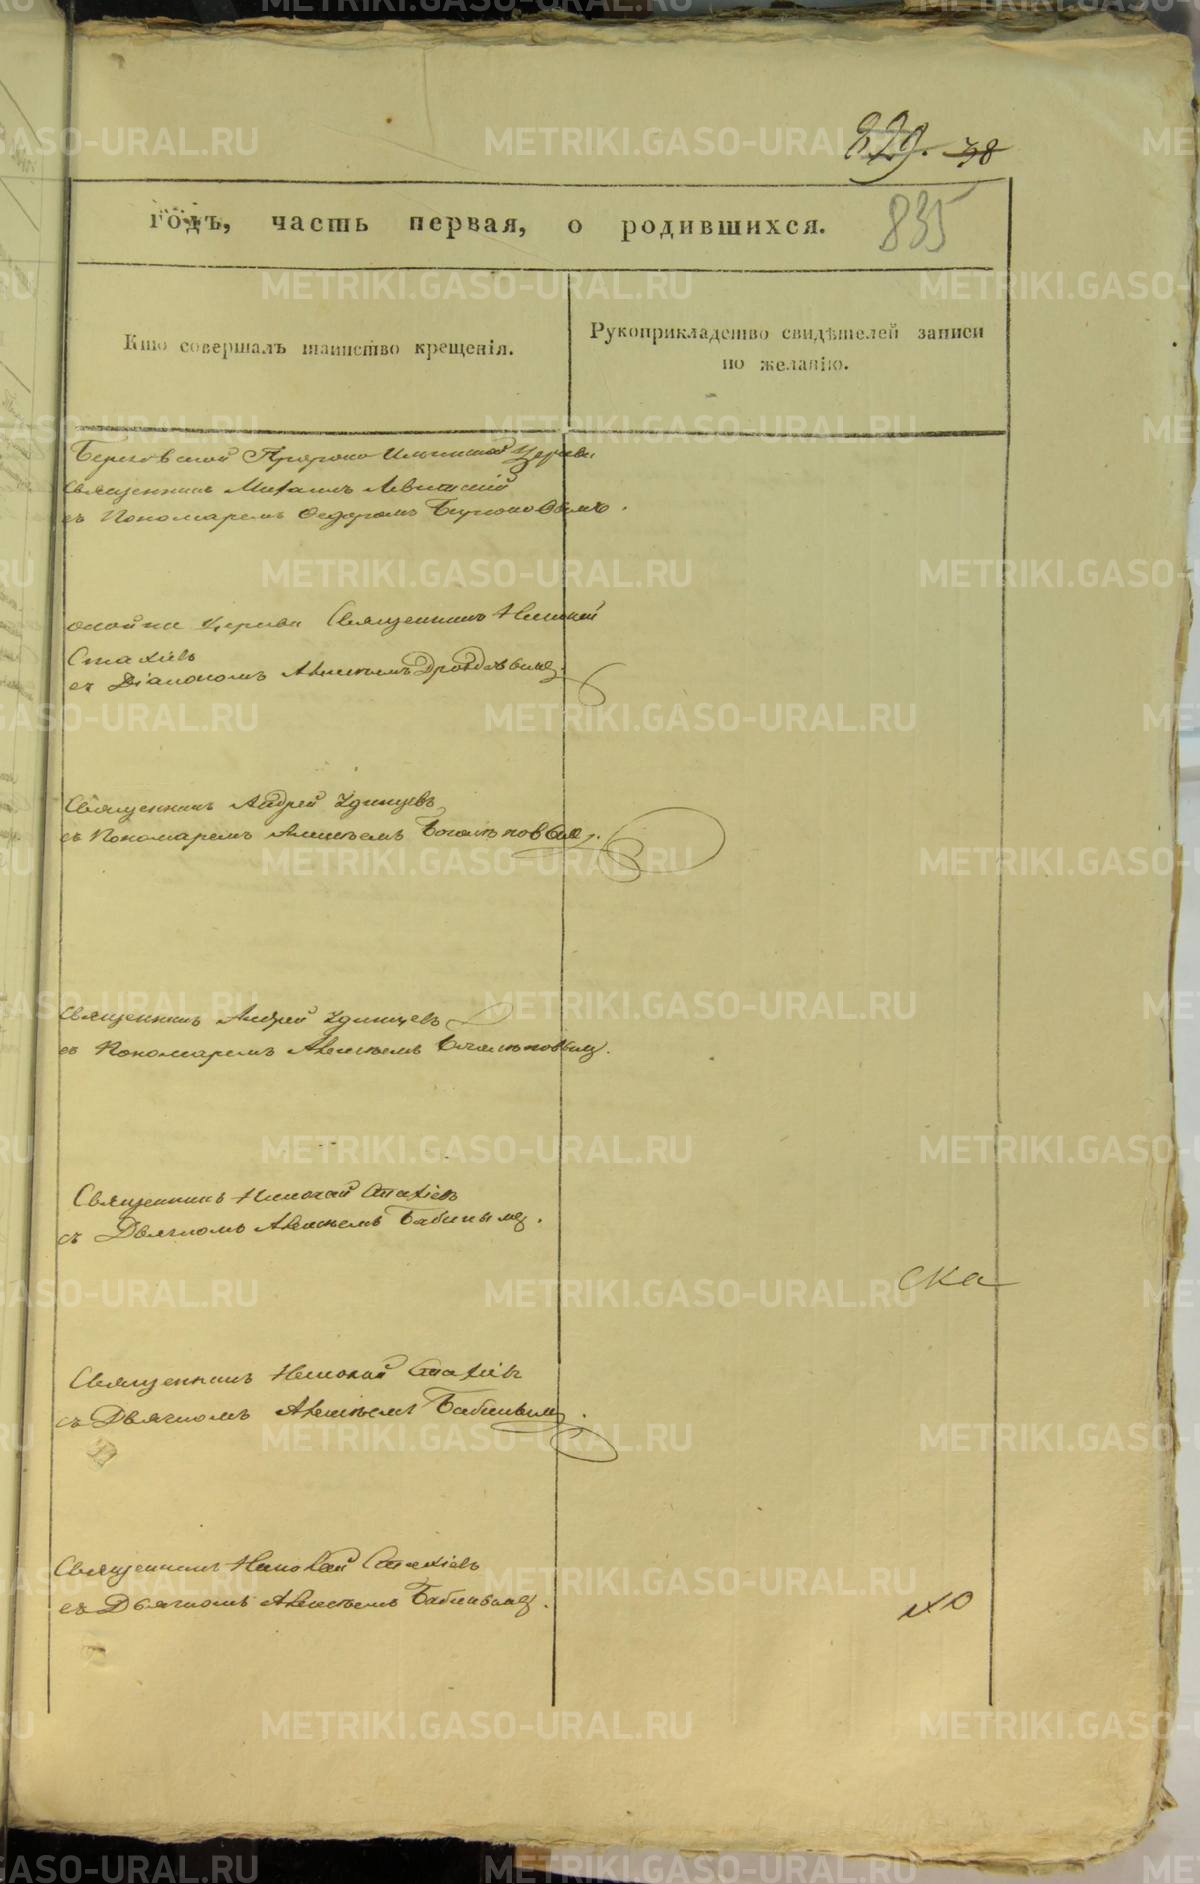 829. 38
835
годъ, часть первая, о родившихся.
Кто совершалъ таинство крещенія.
Рукоприкладство свидѣтелей записи
по желанію.
Пророко Ильинской Церкви
Священникъ Михаилъ Левитскій
съ Пономаремъ Федоромъ
Церкви Священникъ Николай
Стахіевъ
съ Діакономъ Алексѣемъ Дроздовымъ.
Священникъ Андрей Удинцевъ
съ Пономаремъ Алексѣемъ Боголѣповымъ.
Священникъ Андрей Удинцевъ
съ Пономаремъ Алексѣемъ Боголѣповымъ.
Священникъ Николай Стахіевъ
съ Дьячкомъ Алексѣемъ Бабинымъ.
ска
Священникъ Николай Стахіевъ
съ Дьячкомъ Алексѣемъ Бабинымъ.
Священникъ Николай Стахіевъ
съ Дьячкомъ Алексѣемъ Бабинымъ.
METRIKI.GASO-URAL.RU